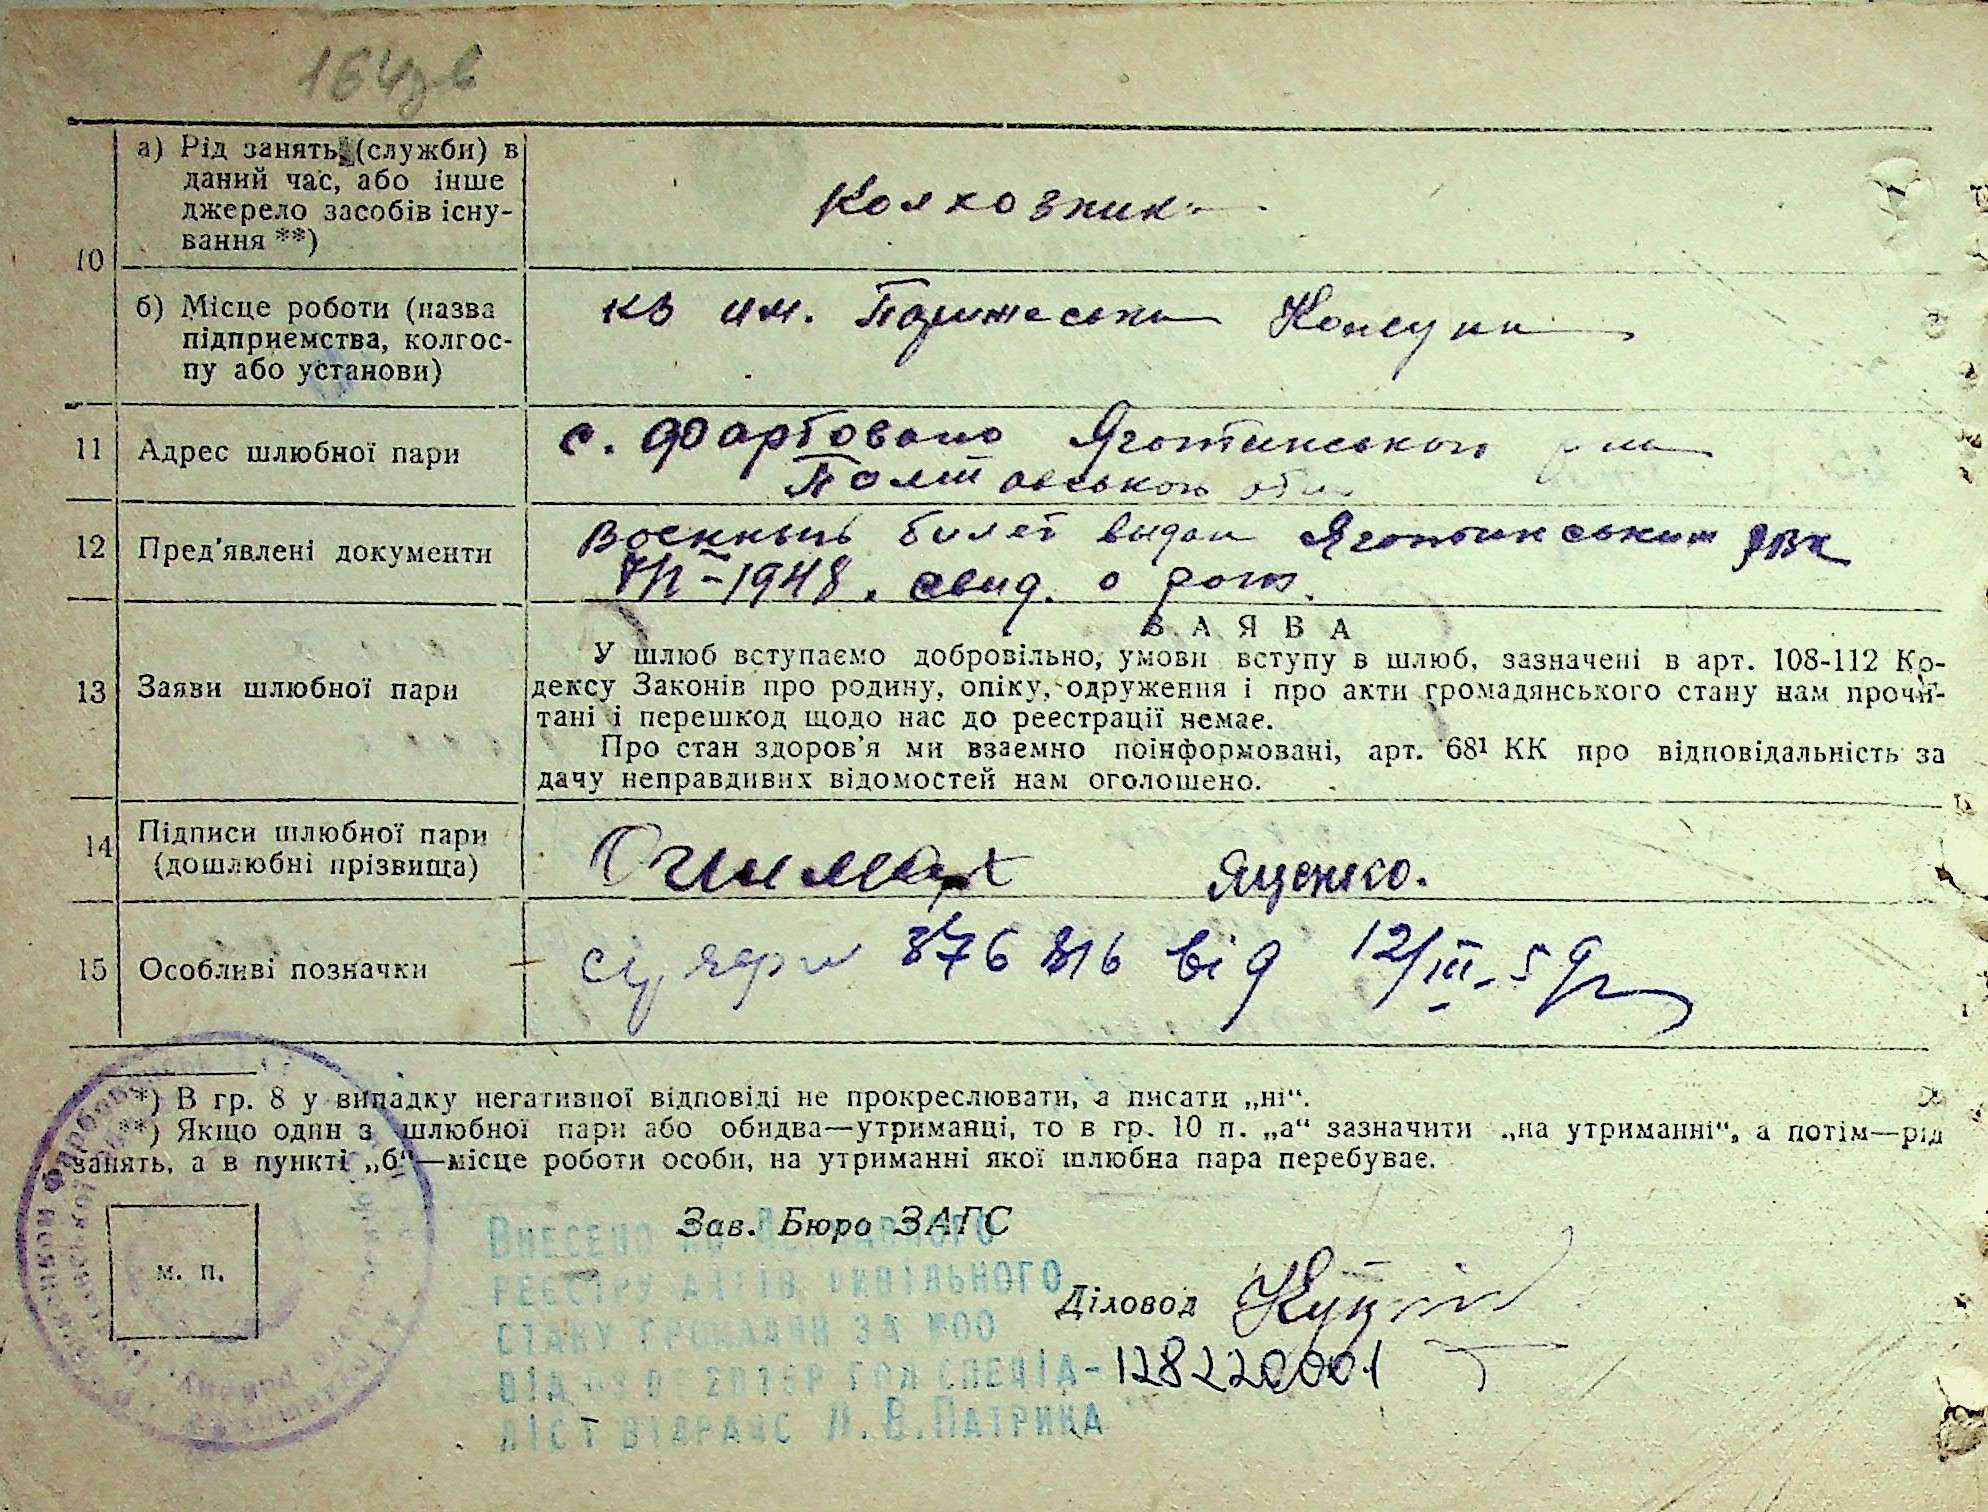 164зв
10
а) Рід занять (служби) в
даний час, або інше
джерело засобів існу-
вання **)
Колхозник
б) Місце роботи (назва
підприємства, колгос-
пу або установи)
кз им.
11
Адрес шлюбної пари
с. Фарбовано Яготинського
Полтавського обл
12
Пред'явлені документи
Военный билет выдан Яготинским РВК
1948. свид. о рож.
13
Заяви шлюбної пари
ЗАЯВА
У шлюб вступаємо добровільно, умови вступу в шлюб, зазначені в арт. 108-112 Ко-
дексу Законів про родину, опіку, одруження і про акти громадянського стану нам прочи-
тані і перешкод щодо нас до реєстрації немає.
Про стан здоров'я ми взаємно поінформовані, арт. 68¹ КК про відповідальність за
дачу неправдивих відомостей нам оголошено.
14
Підписи шлюбної пари
(дошлюбні прізвища)
Яценко.
15
Особливі позначки
від 12/III-59р
*) В гр. 8 у випадку негативної відповіді не прокреслювати, а писати „ні“.
**) Якщо один з шлюбної пари або обидва—утриманці, то в гр. 10 п. „а“ зазначити „на утриманні“, а потім—рід
занять, а в пункті „б“—місце роботи особи, на утриманні якої шлюбна пара перебуває.
Зав. Бюро ЗАГС
м. п.
Діловод
Внесено до Державного
реєстру актів цивільного
стану громадян за №00
128220001
від
спеціа-
ліст відрацс Н.В.Патрика